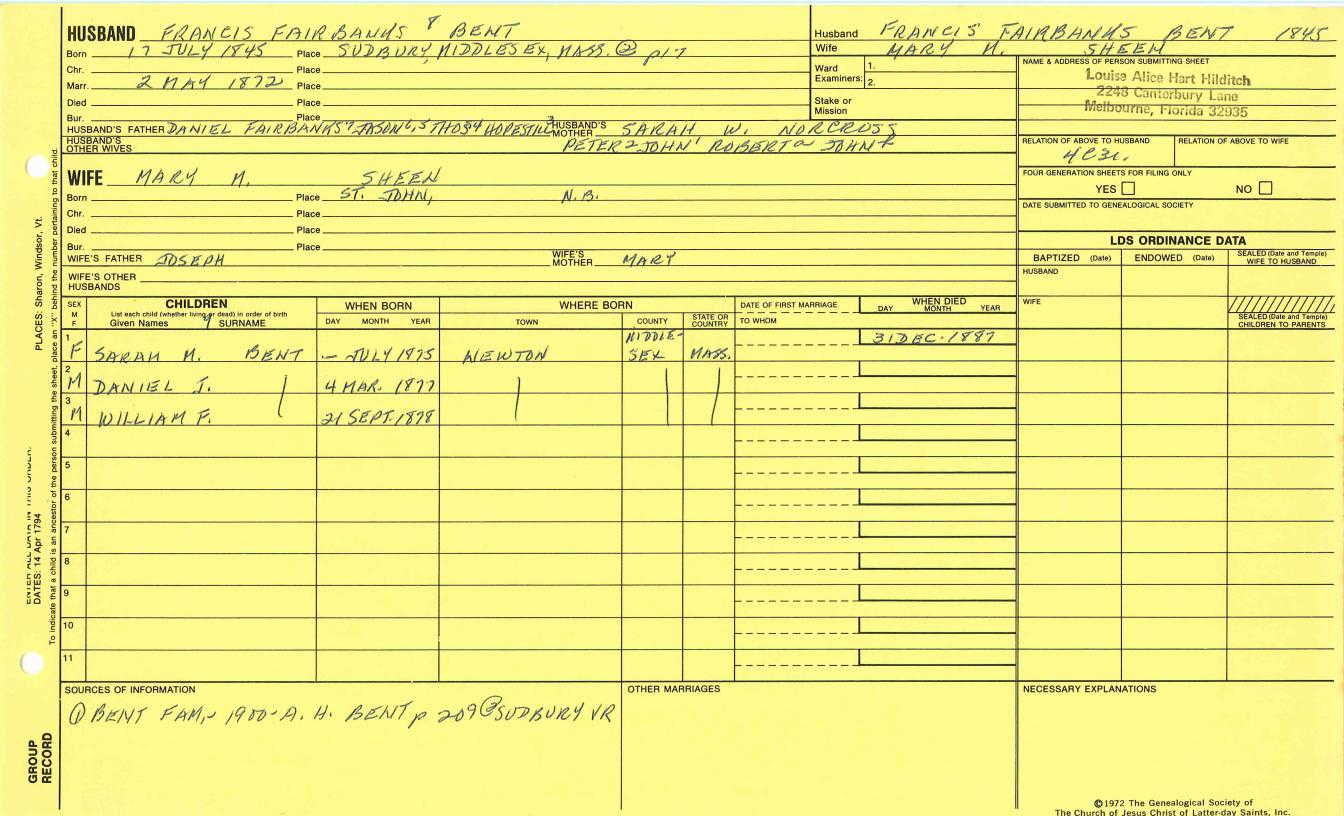 HUSBAND FRANCIS FAIRBANKS 8 BENT
Born 17 JULY 1845 Place SUDBURY, MIDDLESEX, MASS. ② p17
Chr. Place
Marr. 2 MAY 1872 Place
Died Place
Bur. Place
HUSBAND'S FATHER DANIEL FAIRBANKS 7 JASON 6,5 THOS 4 HOPESTILL 3 HUSBAND'S MOTHER SARAH W. NORCROSS
HUSBAND'S OTHER WIVES PETER 2 JOHN 1 ROBERT JOHN
WIFE MARY M. SHEEN
Born Place ST. JOHN, N.B.
Chr. Place
Died Place
Bur. Place
WIFE'S FATHER JOSEPH WIFE'S MOTHER MARY
WIFE'S OTHER HUSBANDS
Husband FRANCIS FAIRBANKS BENT 1845
Wife MARY M. SHEEN
Ward Examiners: 1.
2.
Stake or Mission
NAME & ADDRESS OF PERSON SUBMITTING SHEET
Louise Alice Hart Hilditch
2248 Canterbury Lane
Melbourne, Florida 32935
RELATION OF ABOVE TO HUSBAND RELATION OF ABOVE TO WIFE
FOUR GENERATION SHEETS FOR FILING ONLY
YES NO
DATE SUBMITTED TO GENEALOGICAL SOCIETY
LDS ORDINANCE DATA
BAPTIZED (Date) ENDOWED (Date) SEALED (Date and Temple) WIFE TO HUSBAND
HUSBAND
WIFE
SEALED (Date and Temple) CHILDREN TO PARENTS
SEX M F CHILDREN WHEN BORN WHERE BORN DATE OF FIRST MARRIAGE WHEN DIED
List each child (whether living or dead) in order of birth
Given Names SURNAME DAY MONTH YEAR TOWN COUNTY STATE OR COUNTRY TO WHOM DAY MONTH YEAR
1 F SARAH M. BENT – JULY 1875 NEWTON MIDDLE-SEX MASS. 31 DEC. 1887
2 M DANIEL J. 4 MAR. 1877
3 M WILLIAM F. 21 SEPT. 1878
4
5
6
7
8
9
10
11
SOURCES OF INFORMATION
① BENT FAM,- 1900- A. H. BENT p 209 ② SUDBURY VR
OTHER MARRIAGES
NECESSARY EXPLANATIONS
©1972 The Genealogical Society of
The Church of Jesus Christ of Latter-day Saints, Inc.
PLACES: Sharon, Windsor, Vt.
DATES: 14 Apr 1794
To indicate that a child is an ancestor of the person submitting the sheet, place an "X" behind the number pertaining to that child.
GROUP
RECORD